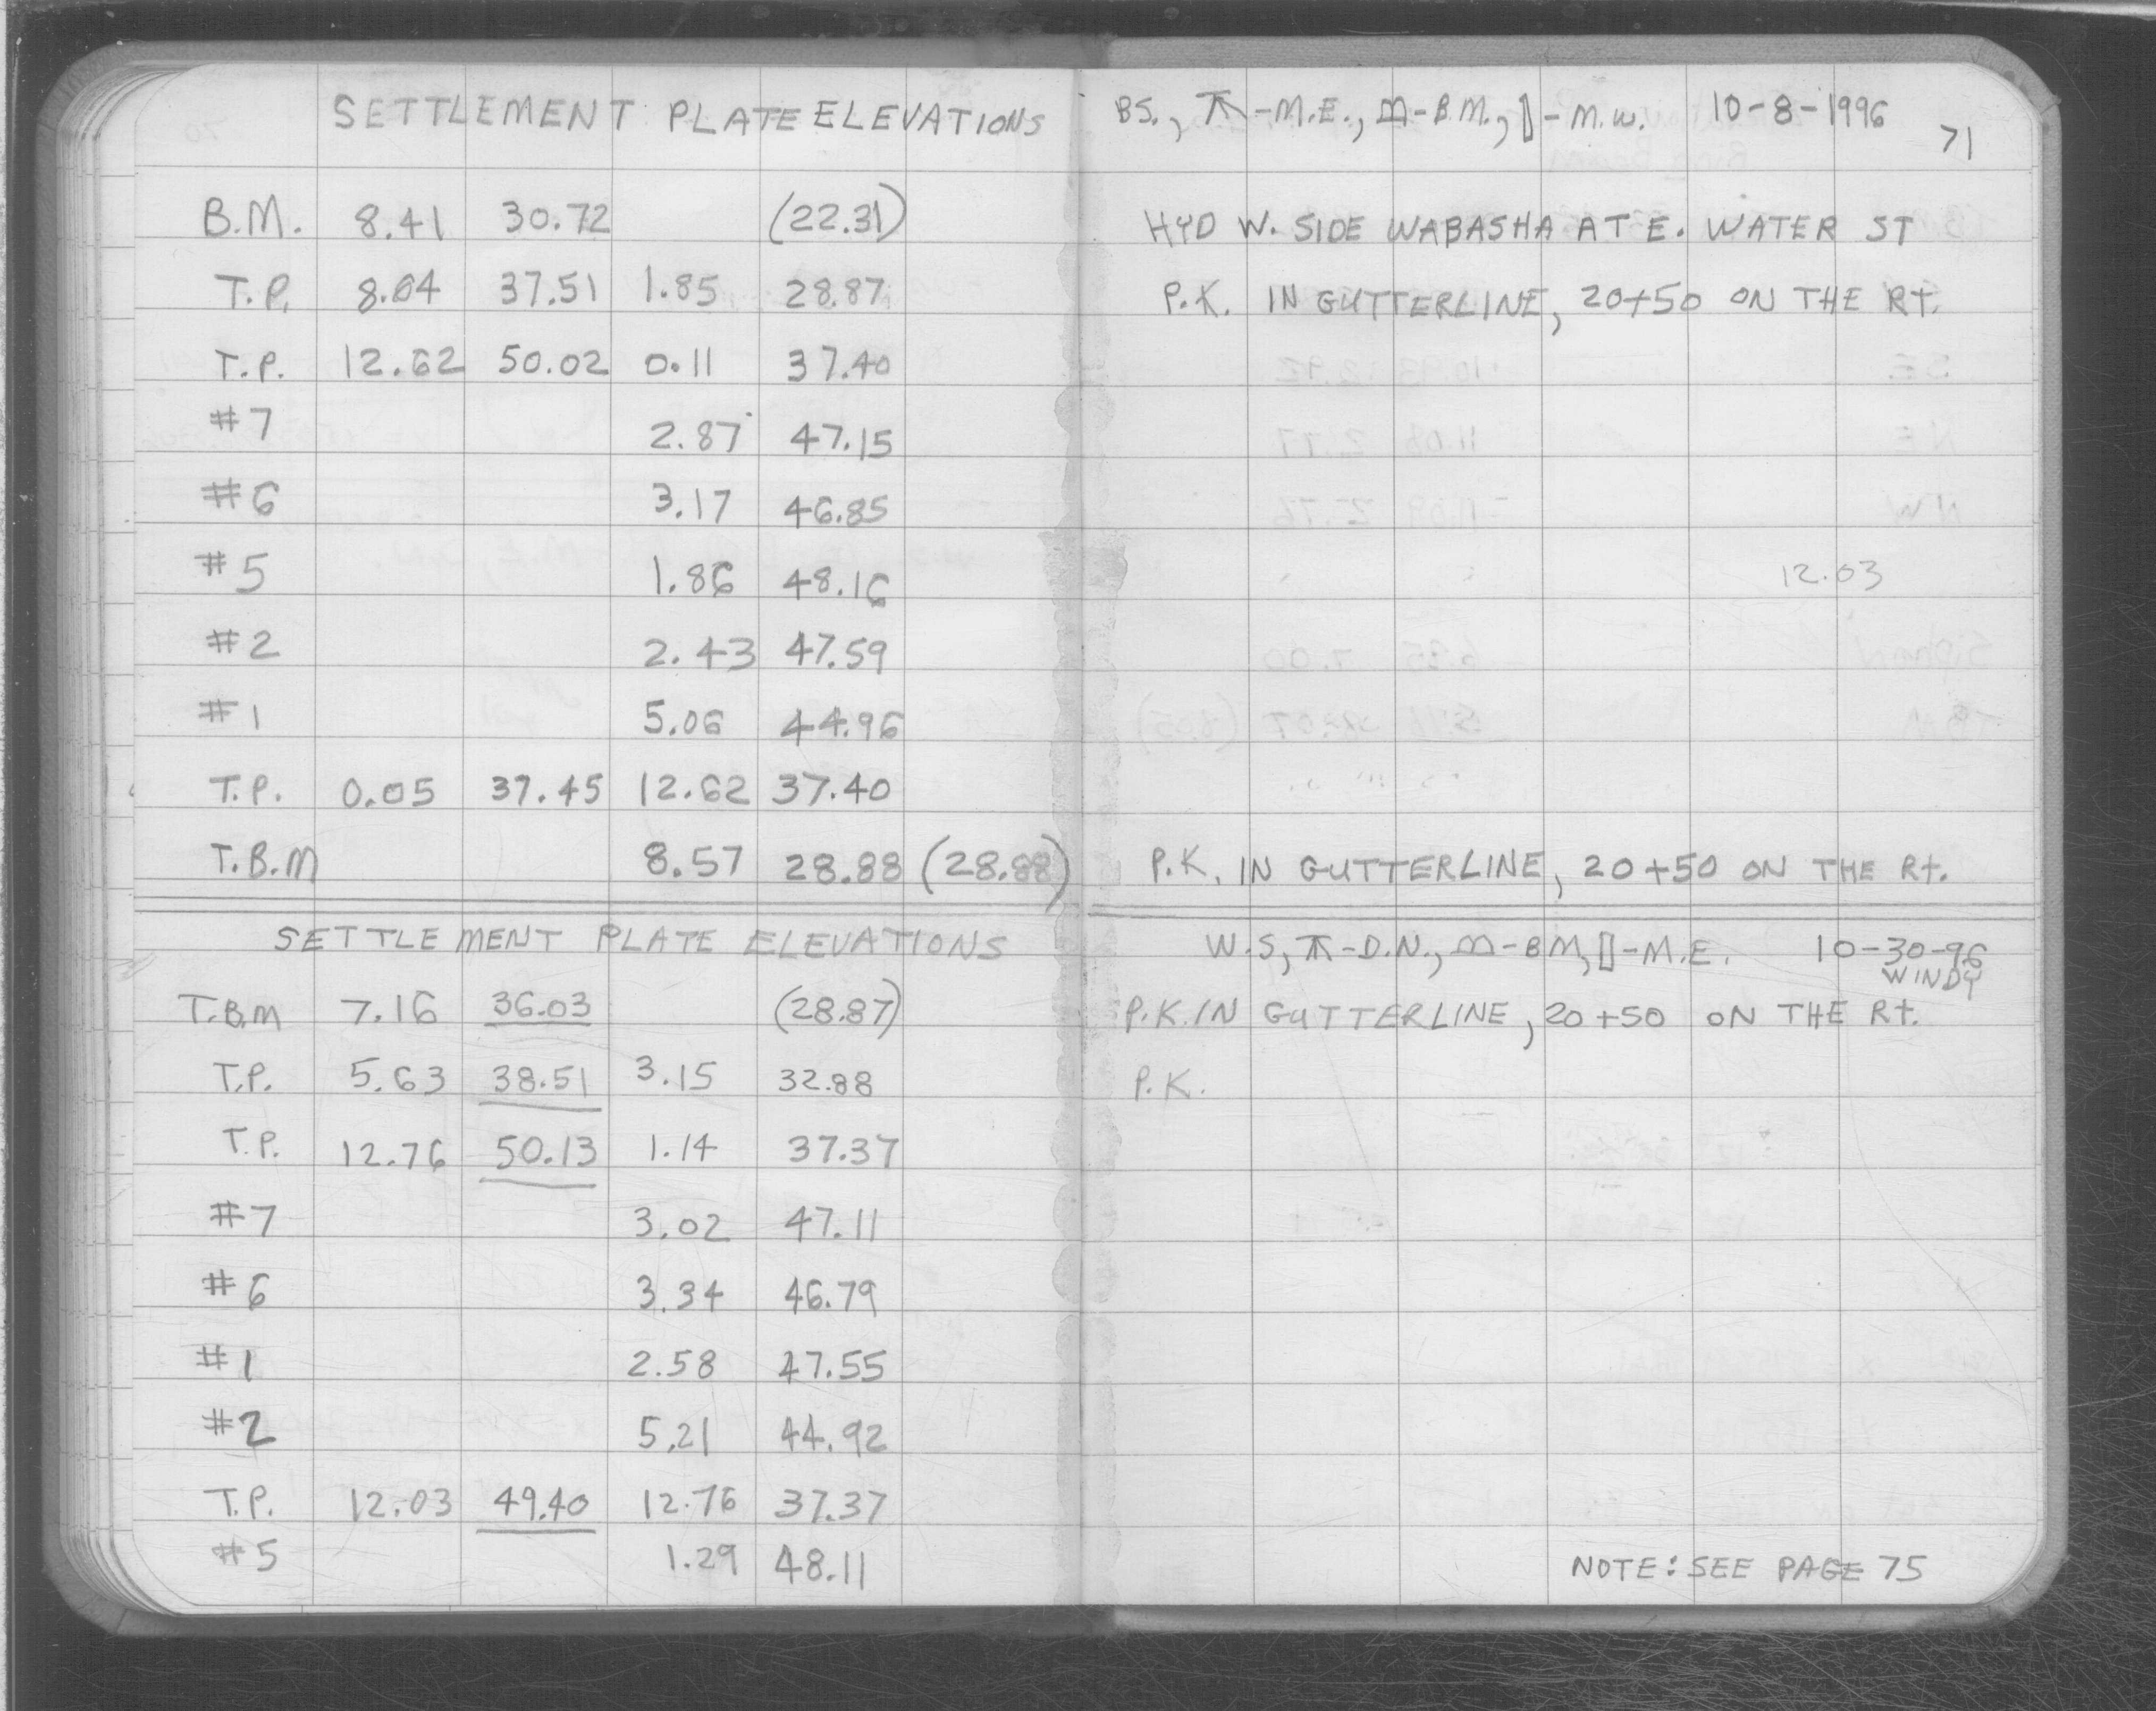 SETTLEMENT PLATE ELEVATIONS BS., ⊼-M.E., ⎍-B.M., ▯-M.W. 10-8-1996
71
B.M. 8.41 30.72 (22.31) HYD W. SIDE WABASHA AT E. WATER ST
T.P. 8.64 37.51 1.85 28.87 P.K. IN GUTTERLINE, 20+50 ON THE Rt.
T.P. 12.62 50.02 0.11 37.40
#7 2.87 47.15
#6 3.17 46.85
#5 1.86 48.16 12.03
#2 2.43 47.59
#1 5.06 44.96
T.P. 0.05 37.45 12.62 37.40
T.B.M 8.57 28.88 (28.88) P.K. IN GUTTERLINE, 20+50 ON THE Rt.
SETTLEMENT PLATE ELEVATIONS W.S, ⊼-D.N., ⎍-BM, ▯-M.E. 10-30-96
WINDY
T.B.M 7.16 36.03 (28.87) P.K. IN GUTTERLINE, 20+50 ON THE Rt.
T.P. 5.63 38.51 3.15 32.88 P.K.
T.P. 12.76 50.13 1.14 37.37
#7 3.02 47.11
#6 3.34 46.79
#1 2.58 47.55
#2 5.21 44.92
T.P. 12.03 49.40 12.76 37.37
#5 1.29 48.11 NOTE: SEE PAGE 75